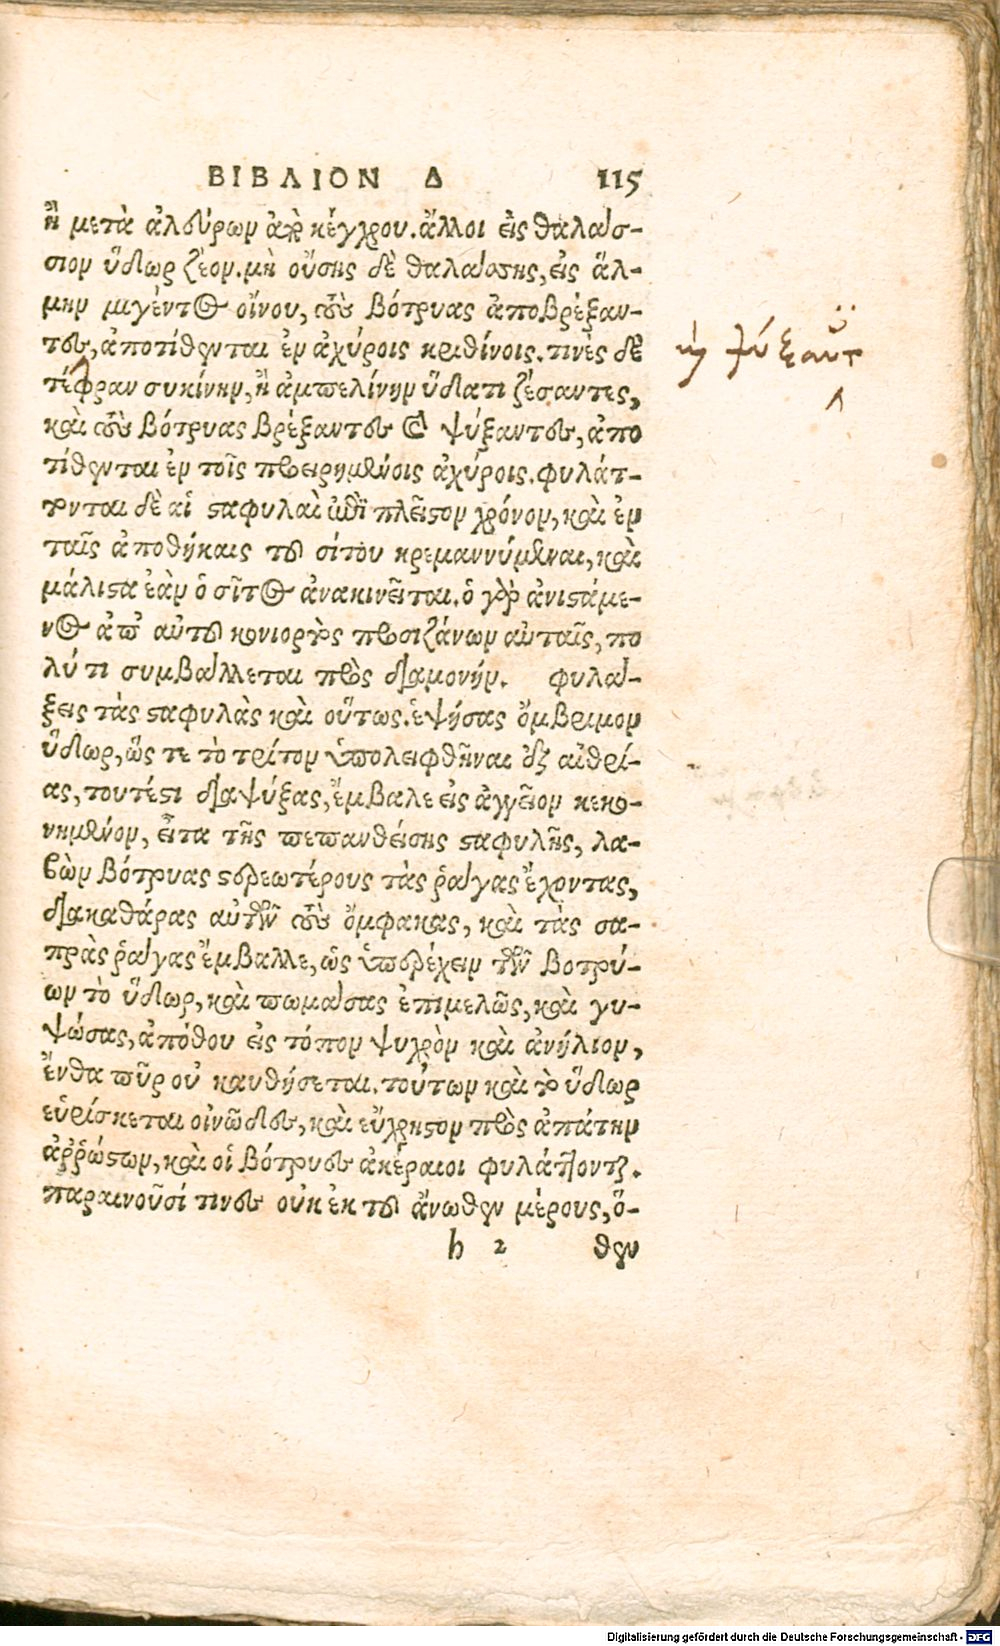 ΒΙΒΛΙΟΝ Δ 115
ἢ μετὰ ἀλεύρων ἀπὸ κέγχρου. ἄλλοι εἰς θαλάσ-
σιον ὕδωρ ζέον. μὴ οὔσης δὲ θαλάσσης, εἰς ἅλ-
μην μιγέντος οἴνου, τοὺς βότρυας ἀποβρέξαν-
τες, ἀποτίθενται ἐν ἀχύροις κριθίνοις. τινὲς δὲ
τέφραν συκίνην, ἢ ἀμπελίνην ὕδατι ζέσαντες,
καὶ τοὺς βότρυας βρέξαντες καὶ ψύξαντες, ἀπο
τίθενται ἐν τοῖς προειρημένοις ἀχύροις. φυλάτ-
τονται δὲ αἱ σταφυλαὶ ἐπὶ πλεῖστον χρόνον, καὶ ἐν
ταῖς ἀποθήκαις τοῦ σίτου κρεμαννύμεναι, καὶ
μάλιστα ἐὰν ὁ σῖτος ἀνακινεῖται. ὁ γὰρ ἀνιστάμε-
νος ἀπ' αὐτοῦ κονιορτὸς προσιζάνων αὐταῖς, πο
λύ τι συμβάλλεται πρὸς διαμονήν. φυλά-
ξεις τὰς σταφυλὰς καὶ οὕτως. ἑψήσας ὄμβριμον
ὕδωρ, ὥς τε τὸ τρίτον ὑπολειφθῆναι δι' αἰθρί-
ας, τουτέστι διαψύξας, ἔμβαλε εἰς ἀγγεῖον κεκο-
νημένον, εἶτα τῆς πεπανθείσης σταφυλῆς, λα-
βὼν βότρυας στερεωτέρους τὰς ῥάγας ἔχοντας,
διακαθάρας αὐτῶν τοὺς ὄμφακας, καὶ τὰς σα-
πρὰς ῥάγας ἔμβαλλε, ὡς ὑπερέχειν τῶν βοτρύ-
ων τὸ ὕδωρ, καὶ πωμάσας ἐπιμελῶς, καὶ γυ-
ψώσας, ἀπόθου εἰς τόπον ψυχρὸν καὶ ἀνήλιον,
ἔνθα πῦρ οὐ καυθήσεται. τούτων καὶ τὸ ὕδωρ
εὑρίσκεται οἰνῶδες, καὶ εὔχρηστον πρὸς ἀπάτην
ἀῤῥώστων, καὶ οἱ βότρυες ἀκέραιοι φυλάττονται.
παραινοῦσί τινες οὐκ ἐκ τοῦ ἄνωθεν μέρους, ὅ-
h 2 θεν